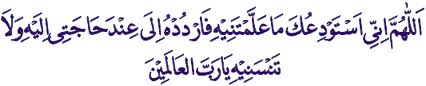 اَللّٰهُمَّ اِنِّى اَسْتَوْدِعُكَ مَا عَلَّمْتَنِيْهِ فَارْدُدْهُ اِلَىَّ عِنْدَ حَاجَتِى اِلَيْهِ وَلَا
تَنْسَنِيْهِ يَارَبَّ الْعَالَمِيْنَ